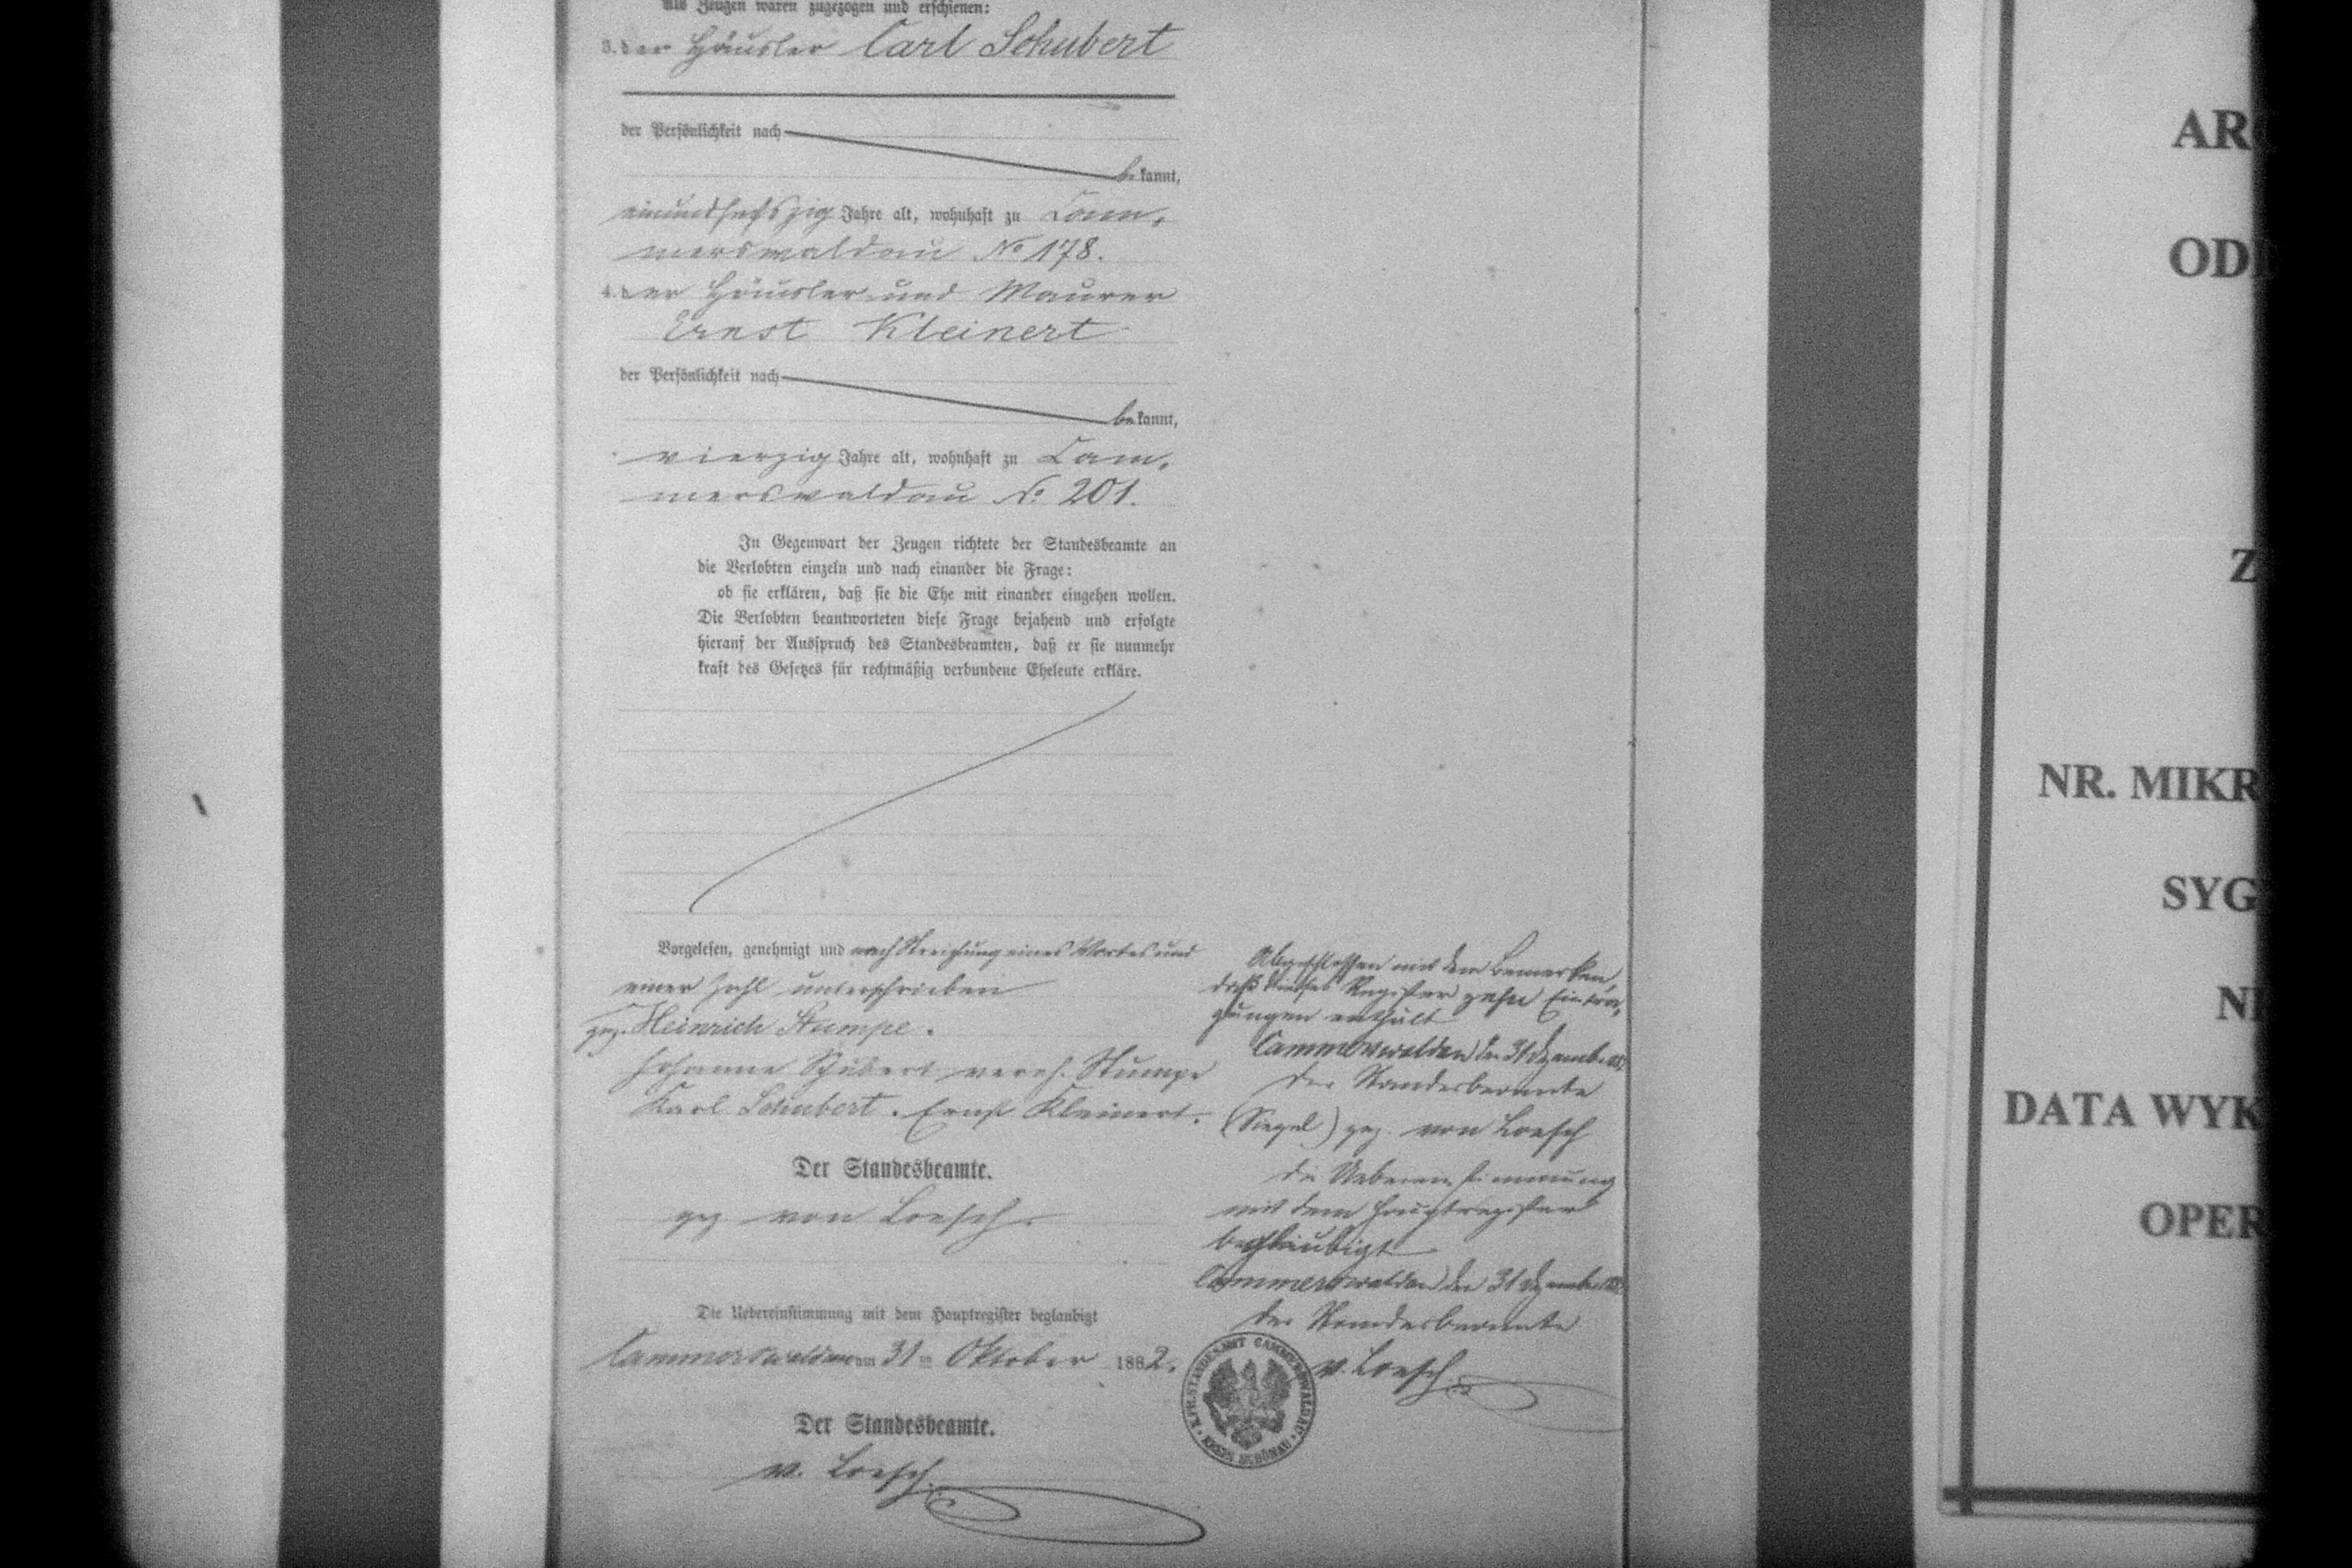 Als Zeugen waren zugezogen und erschienen:
3. der Häusler Carl Schubert
der Persönlichkeit nach
bekannt,
einundsechszig Jahre alt, wohnhaft zu Cam-
merswaldau No 178.
4. der Häusler und Maurer
Ernst Kleinert
der Persönlichkeit nach
bekannt,
vierzig Jahre alt, wohnhaft zu Cam-
merswaldau No 201.
In Gegenwart der Zeugen richtete der Standesbeamte an
die Verlobten einzeln und nach einander die Frage:
ob sie erklären, daß sie die Ehe mit einander eingehen wollen.
Die Verlobten beantworteten diese Frage bejahend und erfolgte
hierauf der Ausspruch des Standesbeamten, daß er sie nunmehr
kraft des Gesetzes für rechtmäßig verbundene Eheleute erkläre.
Vorgelesen, genehmigt und nach Streichung eines Wortes und
einer Zahl unterschrieben
gez. Heinrich Stumpe.
Johanne Schubert vereh. Stumpe
Karl Schubert. Ernst Kleinert.
Der Standesbeamte.
gez von Loesch.
Die Uebereinstimmung mit dem Hauptregister beglaubigt
Cammerswaldau am 31 ten Oktober 1882.
Der Standesbeamte.
v. Loesch.
Abgeschlossen mit dem Bemerken,
daß dieses Register zehn Eintra-
gungen enthält
Cammerswaldau den 31 Dezember
Der Standesbeamte
(Siegel) gez. von Loesch
Die Uebereinstimmung
mit dem Hauptregister
beglaubigt
Cammerswaldau den 31 Dezember
Der Standesbeamte
v. Loesch.
K. PR. STANDESAMT CAMMERSWALDAU
KREIS SCHÖNAU
AR
OD
Z
NR. MIKR
SYG
N
DATA WYK
OPER